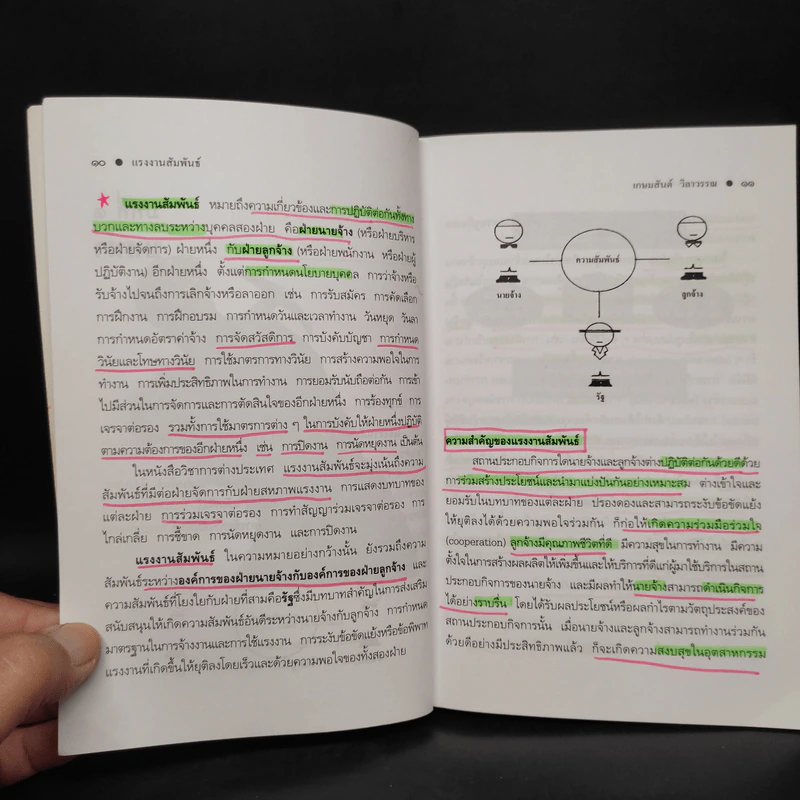 ๑๐ ● แรงงานสัมพันธ์
แรงงานสัมพันธ์ หมายถึงความเกี่ยวข้องและการปฏิบัติต่อกันทั้งทาง
บวกและทางลบระหว่างบุคคลสองฝ่าย คือฝ่ายนายจ้าง (หรือฝ่ายบริหาร
หรือฝ่ายจัดการ) ฝ่ายหนึ่ง กับฝ่ายลูกจ้าง (หรือฝ่ายพนักงาน หรือฝ่ายผู้
ปฏิบัติงาน) อีกฝ่ายหนึ่ง ตั้งแต่การกำหนดนโยบายบุคคล การว่าจ้างหรือ
รับจ้างไปจนถึงการเลิกจ้างหรือลาออก เช่น การรับสมัคร การคัดเลือก
การฝึกงาน การฝึกอบรม การกำหนดวันและเวลาทำงาน วันหยุด วันลา
การกำหนดอัตราค่าจ้าง การจัดสวัสดิการ การบังคับบัญชา การกำหนด
วินัยและโทษทางวินัย การใช้มาตรการทางวินัย การสร้างความพอใจในการ
ทำงาน การเพิ่มประสิทธิภาพในการทำงาน การยอมรับนับถือต่อกัน การเข้า
ไปมีส่วนในการจัดการและการตัดสินใจของอีกฝ่ายหนึ่ง การร้องทุกข์ การ
เจรจาต่อรอง รวมทั้งการใช้มาตรการต่าง ๆ ในการบังคับให้ฝ่ายหนึ่งปฏิบัติ
ตามความต้องการของอีกฝ่ายหนึ่ง เช่น การปิดงาน การนัดหยุดงาน เป็นต้น
ในหนังสือวิชาการต่างประเทศ แรงงานสัมพันธ์จะมุ่งเน้นถึงความ
สัมพันธ์ที่มีต่อฝ่ายจัดการกับฝ่ายสหภาพแรงงาน การแสดงบทบาทของ
แต่ละฝ่าย การร่วมเจรจาต่อรอง การทำสัญญาร่วมเจรจาต่อรอง การ
ไกล่เกลี่ย การชี้ขาด การนัดหยุดงาน และการปิดงาน
แรงงานสัมพันธ์ ในความหมายอย่างกว้างนั้น ยังรวมถึงความ
สัมพันธ์ระหว่างองค์การของฝ่ายนายจ้างกับองค์การของฝ่ายลูกจ้าง และ
ความสัมพันธ์ที่โยงใยกับฝ่ายที่สามคือรัฐซึ่งมีบทบาทสำคัญในการส่งเสริม
สนับสนุนให้เกิดความสัมพันธ์อันดีระหว่างนายจ้างกับลูกจ้าง การกำหนด
มาตรฐานในการจ้างงานและการใช้แรงงาน การระงับข้อขัดแย้งหรือข้อพิพาท
แรงงานที่เกิดขึ้นให้ยุติลงโดยเร็วและด้วยความพอใจของทั้งสองฝ่าย
เกษมสันต์ วิลาวรรณ ● ๑๑
ความสัมพันธ์
นายจ้าง
ลูกจ้าง
รัฐ
ความสำคัญของแรงงานสัมพันธ์
สถานประกอบกิจการใดนายจ้างและลูกจ้างต่างปฏิบัติต่อกันด้วยดีด้วย
การร่วมสร้างประโยชน์และนำมาแบ่งปันกันอย่างเหมาะสม ต่างเข้าใจและ
ยอมรับในบทบาทของแต่ละฝ่าย ปรองดองและสามารถระงับข้อขัดแย้ง
ให้ยุติลงได้ด้วยความพอใจร่วมกัน ก็ก่อให้เกิดความร่วมมือร่วมใจ
(cooperation) ลูกจ้างมีคุณภาพชีวิตที่ดี มีความสุขในการทำงาน มีความ
ตั้งใจในการสร้างผลผลิตให้เพิ่มขึ้นและให้บริการที่ดีแก่ผู้มาใช้บริการในสถาน
ประกอบกิจการของนายจ้าง และมีผลทำให้นายจ้างสามารถดำเนินกิจการ
ได้อย่างราบรื่น โดยได้รับผลประโยชน์หรือผลกำไรตามวัตถุประสงค์ของ
สถานประกอบกิจการนั้น เมื่อนายจ้างและลูกจ้างสามารถทำงานร่วมกัน
ด้วยดีอย่างมีประสิทธิภาพแล้ว ก็จะเกิดความสงบสุขในอุตสาหกรรม